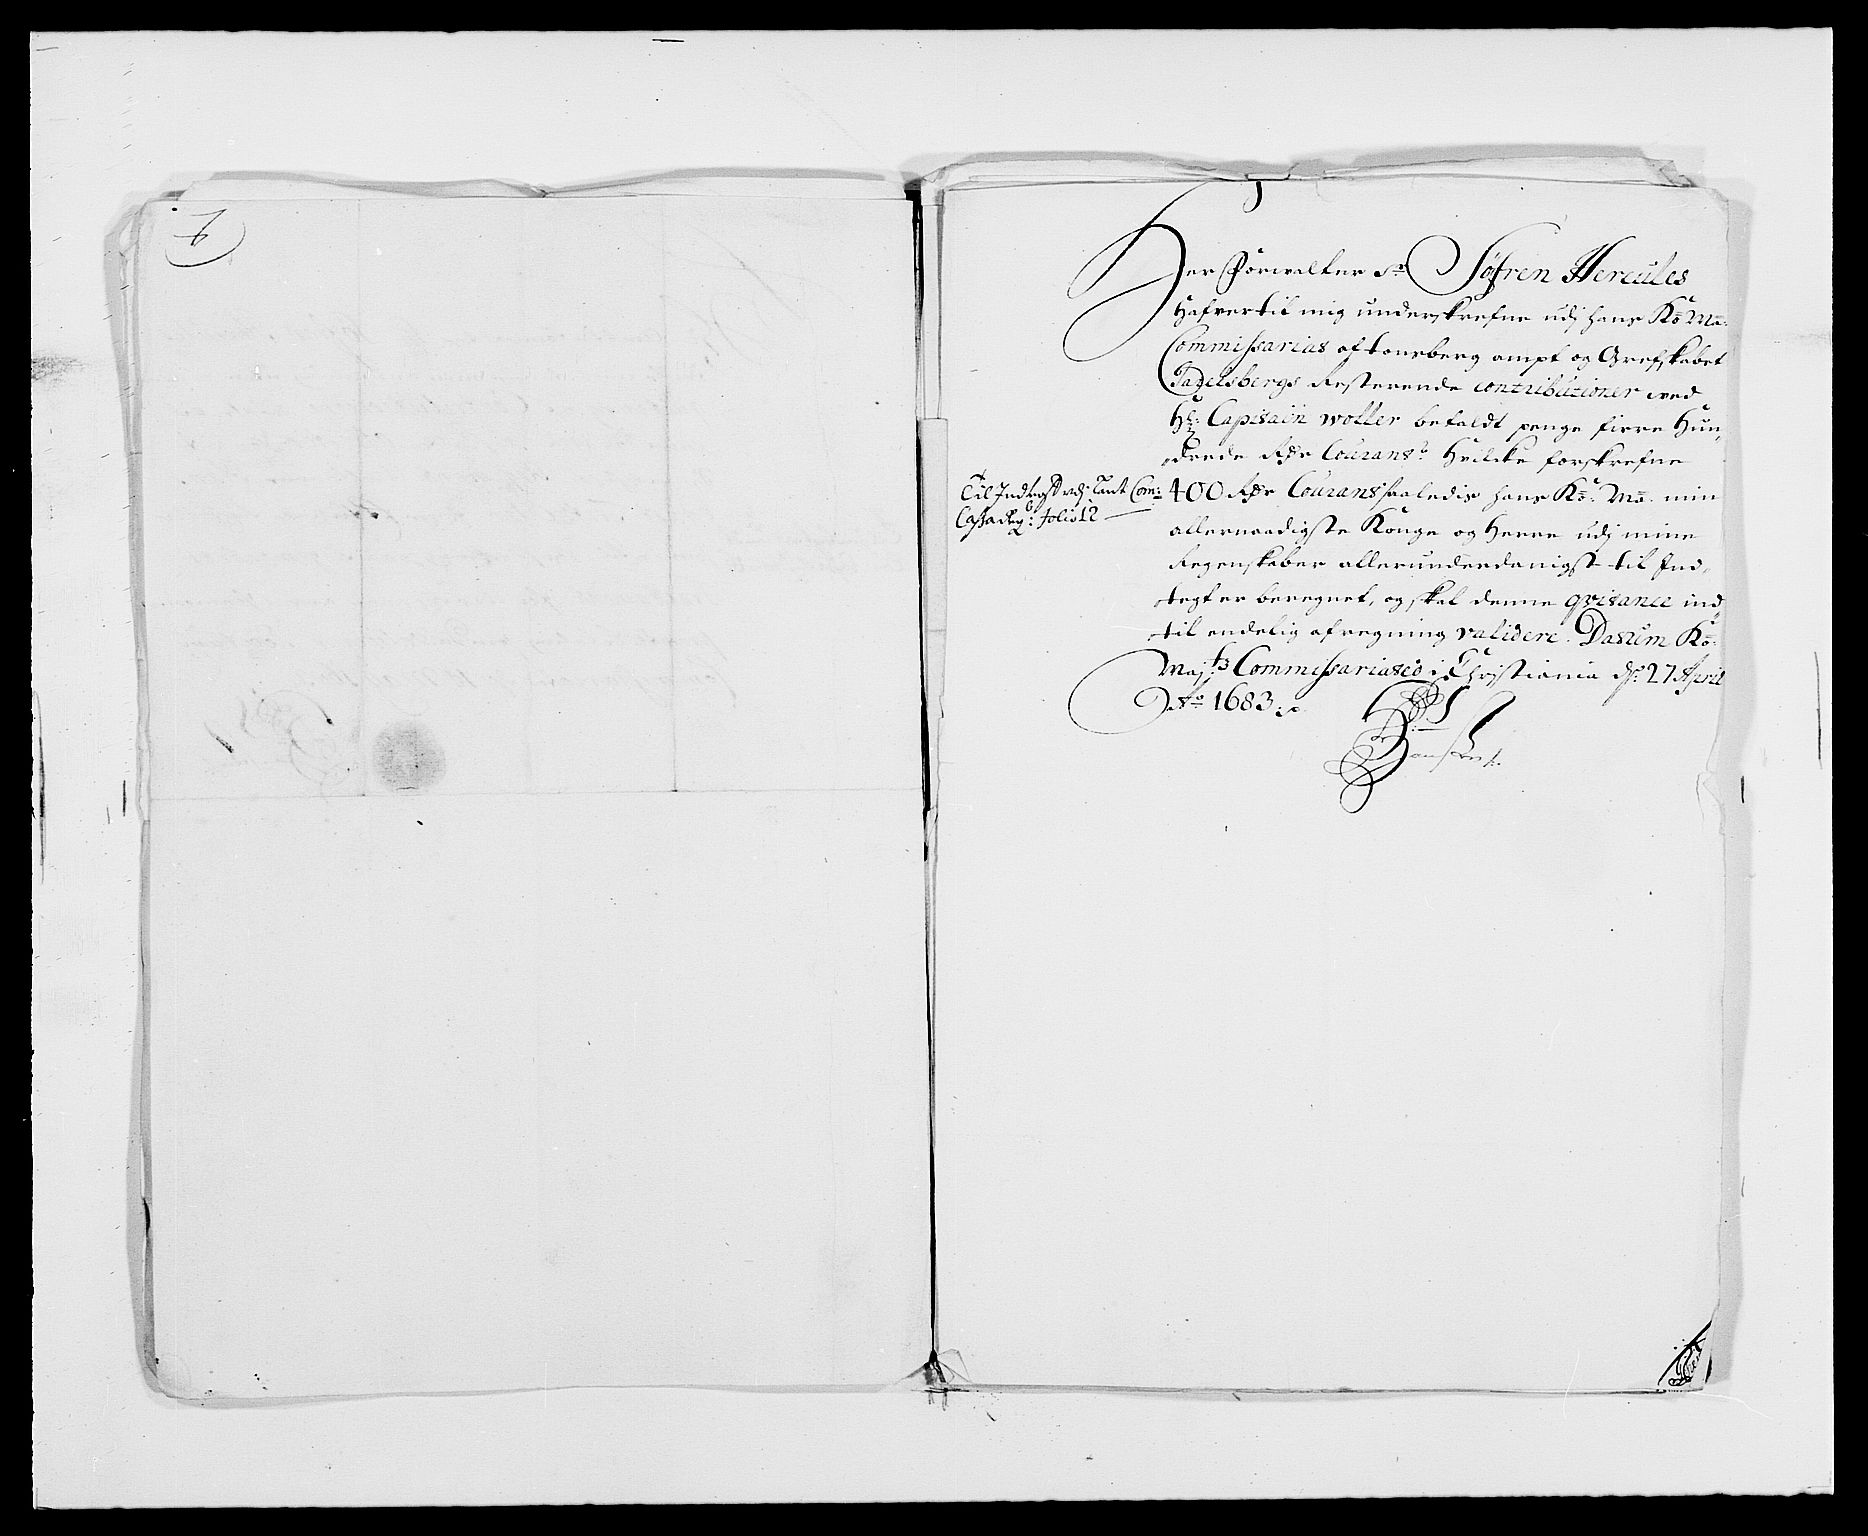 Her Forwalter Sr Søfren Hercules
Hafver til mig underskrefne udj hans Ko Ma:
Commissariat af tonsberg ampt og Grefskabet
Jarelsbergs Resterende contributioner ved
Hr: Capitain woller betaldt penge firre Hun„
drede Rdr Courant: Hvilcke forskrefne
400 Rdr Courant saaledis hans Ko: Ma: min
allernaadigste Konge og Herre udj mine
Regenskaber allerunderdanigst til Ind„
tegter beregnet, og skal denne qvitance ind„
til endelig afregning validere. Datum Ko:
Maj:ts Commissariatet i Christiania d: 27 April
Ao 1683
Til Indtegt udj Lant Com:
Cassa Reg: folio 12